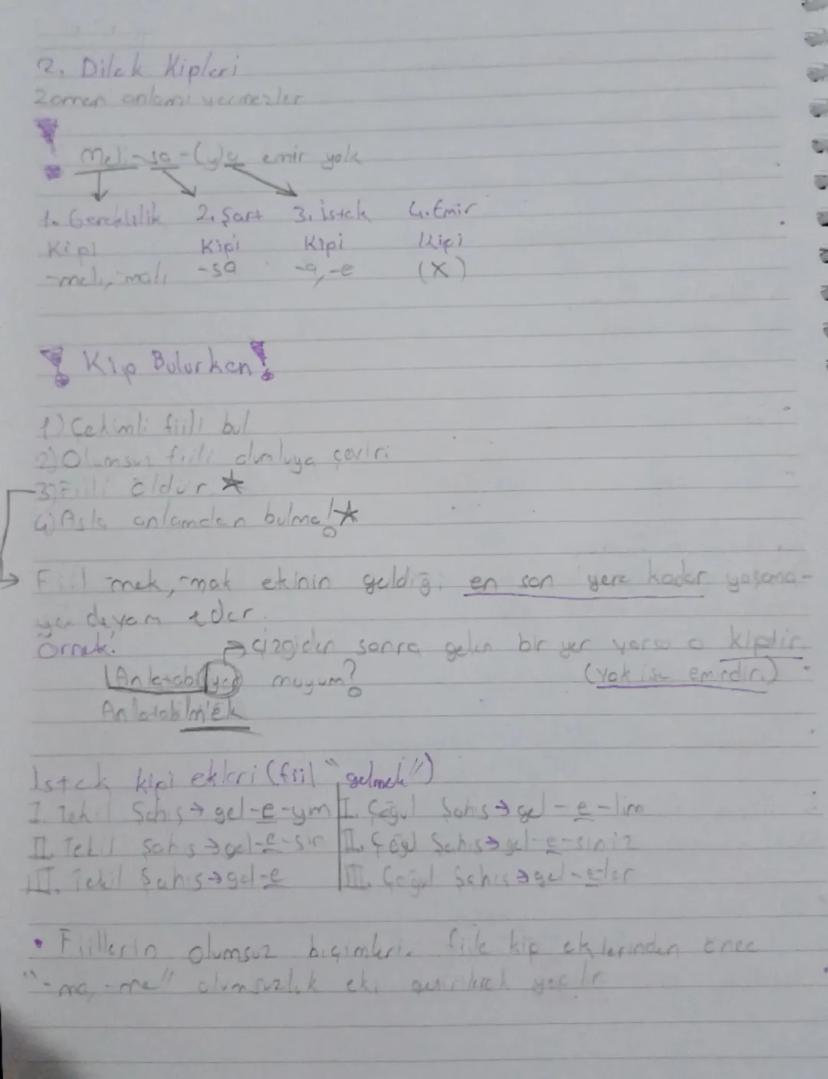 2. Dilek Kipleri
Zaman anlamı vermezler
! Meli-sa-(y)a emir yok
1. Gereklilik 2. Şart 3. İstek 4. Emir
Kipi Kipi Kipi Kipi
-meli, -malı -sa -a, -e (X)
! Kip Bulurken!
1) Çekimli fiili bul
2) Olumsuz fiili olumluya çevir
3) Fiili öldür ★
4) Asla anlamdan bulma! ★
→ Fiil -mek, -mak ekinin geldiği en son yere kadar yaşama-
ya devam eder.
Örnek: → çizgiden sonra gelen bir yer varsa o kiptir.
Anlatabiliyor muyum? (yok ise emirdir.)
Anlatabilmek
İstek kipi ekleri (fiil "gelmek")
I. Tekil Şahıs → gel-e-yim I. Çoğul Şahıs → gel-e-lim
II. Tekil Şahıs → gel-e-sin II. Çoğul Şahıs → gel-e-siniz
III. Tekil Şahıs → gel-e III. Çoğul Şahıs → gel-e-ler
• Fiillerin olumsuz biçimleri, fiile kip eklerinden önce
"-ma, -me" olumsuzluk eki getirilerek yapılır